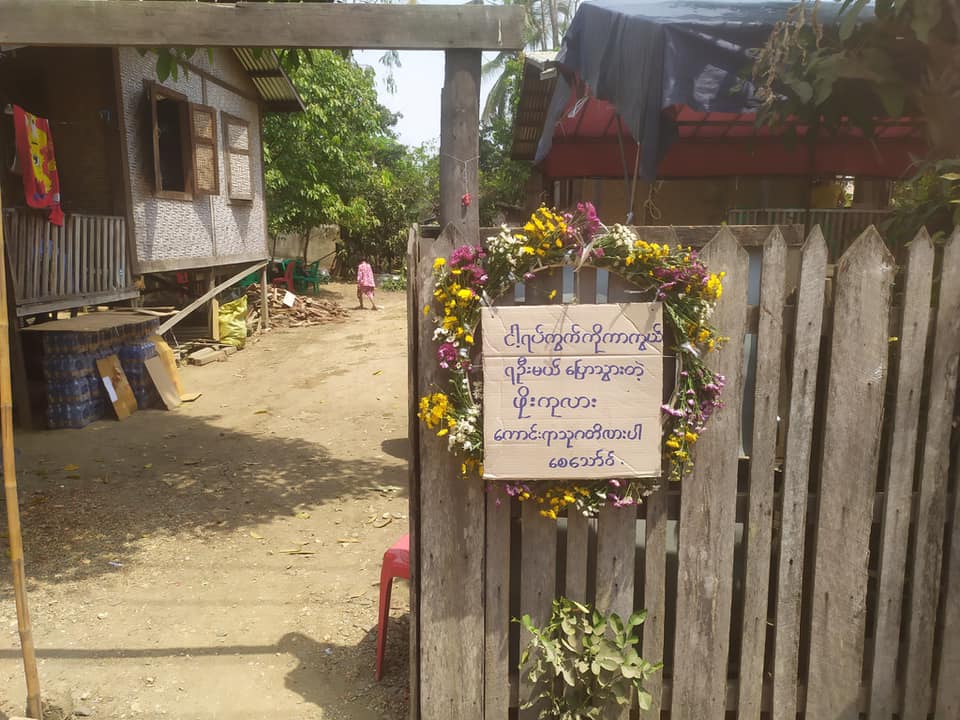 ငါ့ရပ်ကွက်ကိုကာကွယ်
ရဦးမယ် ပြောသွားတဲ့
ဖိုးကုလား
ကောင်းရာသုဂတိလားပါ
စေသော်ဝ်.